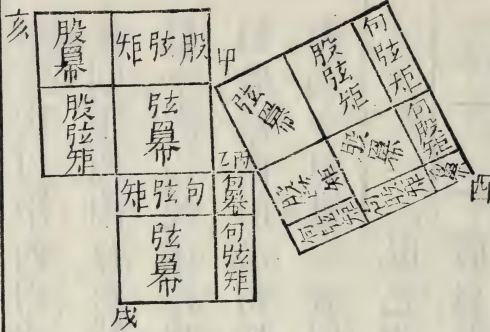 亥
股冪
矩弦股
甲
股弦矩
弦冪
乙丙
矩弦句
句冪
弦冪
句弦矩
戌
弦冪
股弦矩
句弦矩
股弦矩
股冪
句股矩
句弦矩
句股矩
句冪
酉